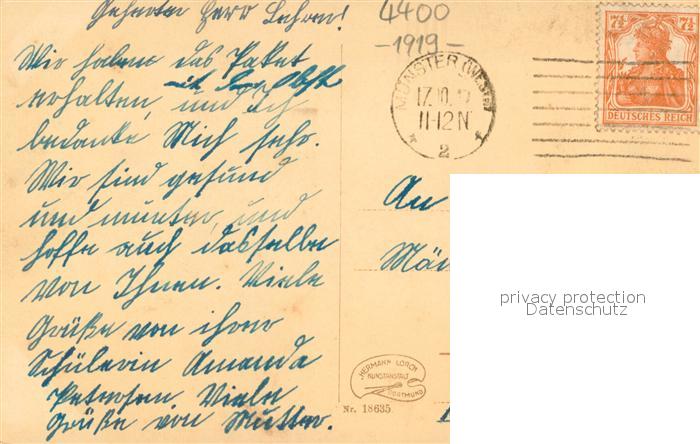 Geehrter Herr Lehrer!
Wir haben das Paket
mit dem Obst
erhalten, und ich
bedanke Mich sehr.
Wir sind gesund
und munter, und
hoffe auch dasselbe
von Ihnen. Viele
Grüße von ihrer
Schülerin Amanda
Petersen. Viele
Grüße von Mutter.
4400
-1919-
MÜNSTER (WESTF)
17.10.
11-12 N
* 2 *
7½ 7½
DEUTSCHES REICH
An
privacy protection
Datenschutz
HERMANN LORCH
KUNSTANSTALT
DORTMUND
Nr. 18635